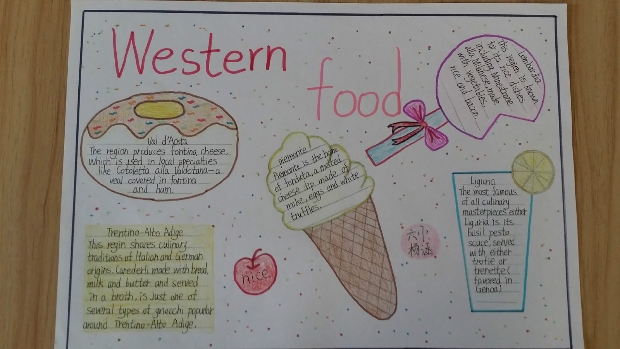 Western
food
Val d'Aosta
The region produces fontina cheese,
which is used in local specialties
like Cotoletta alla Valdotana-a
veal covered in fontina
and ham.
piemonte
Piemonte is the home
of fonduta, a melted
cheese dip made of
milke, eggs and white
truffles.
Lombardia
This region is known
for its rice dishes
including Minestrone
alla Milanese, made
with vegetables,
rice and bacon.
Liguria
The most famous
of all culinary
masterpieces either
Liguria is its
basil pesto
sauce, served
with either
trofie or
trenette(
favored in
Genoa)
Trentino-Alto Adige
This regin shares culinary
traditions of Italian and German
origins. Canederli, made with bread,
milk and butter and served
in a broth, is just one of
several types of gnocchi popular
around Trentino-Alto Adige.
nice